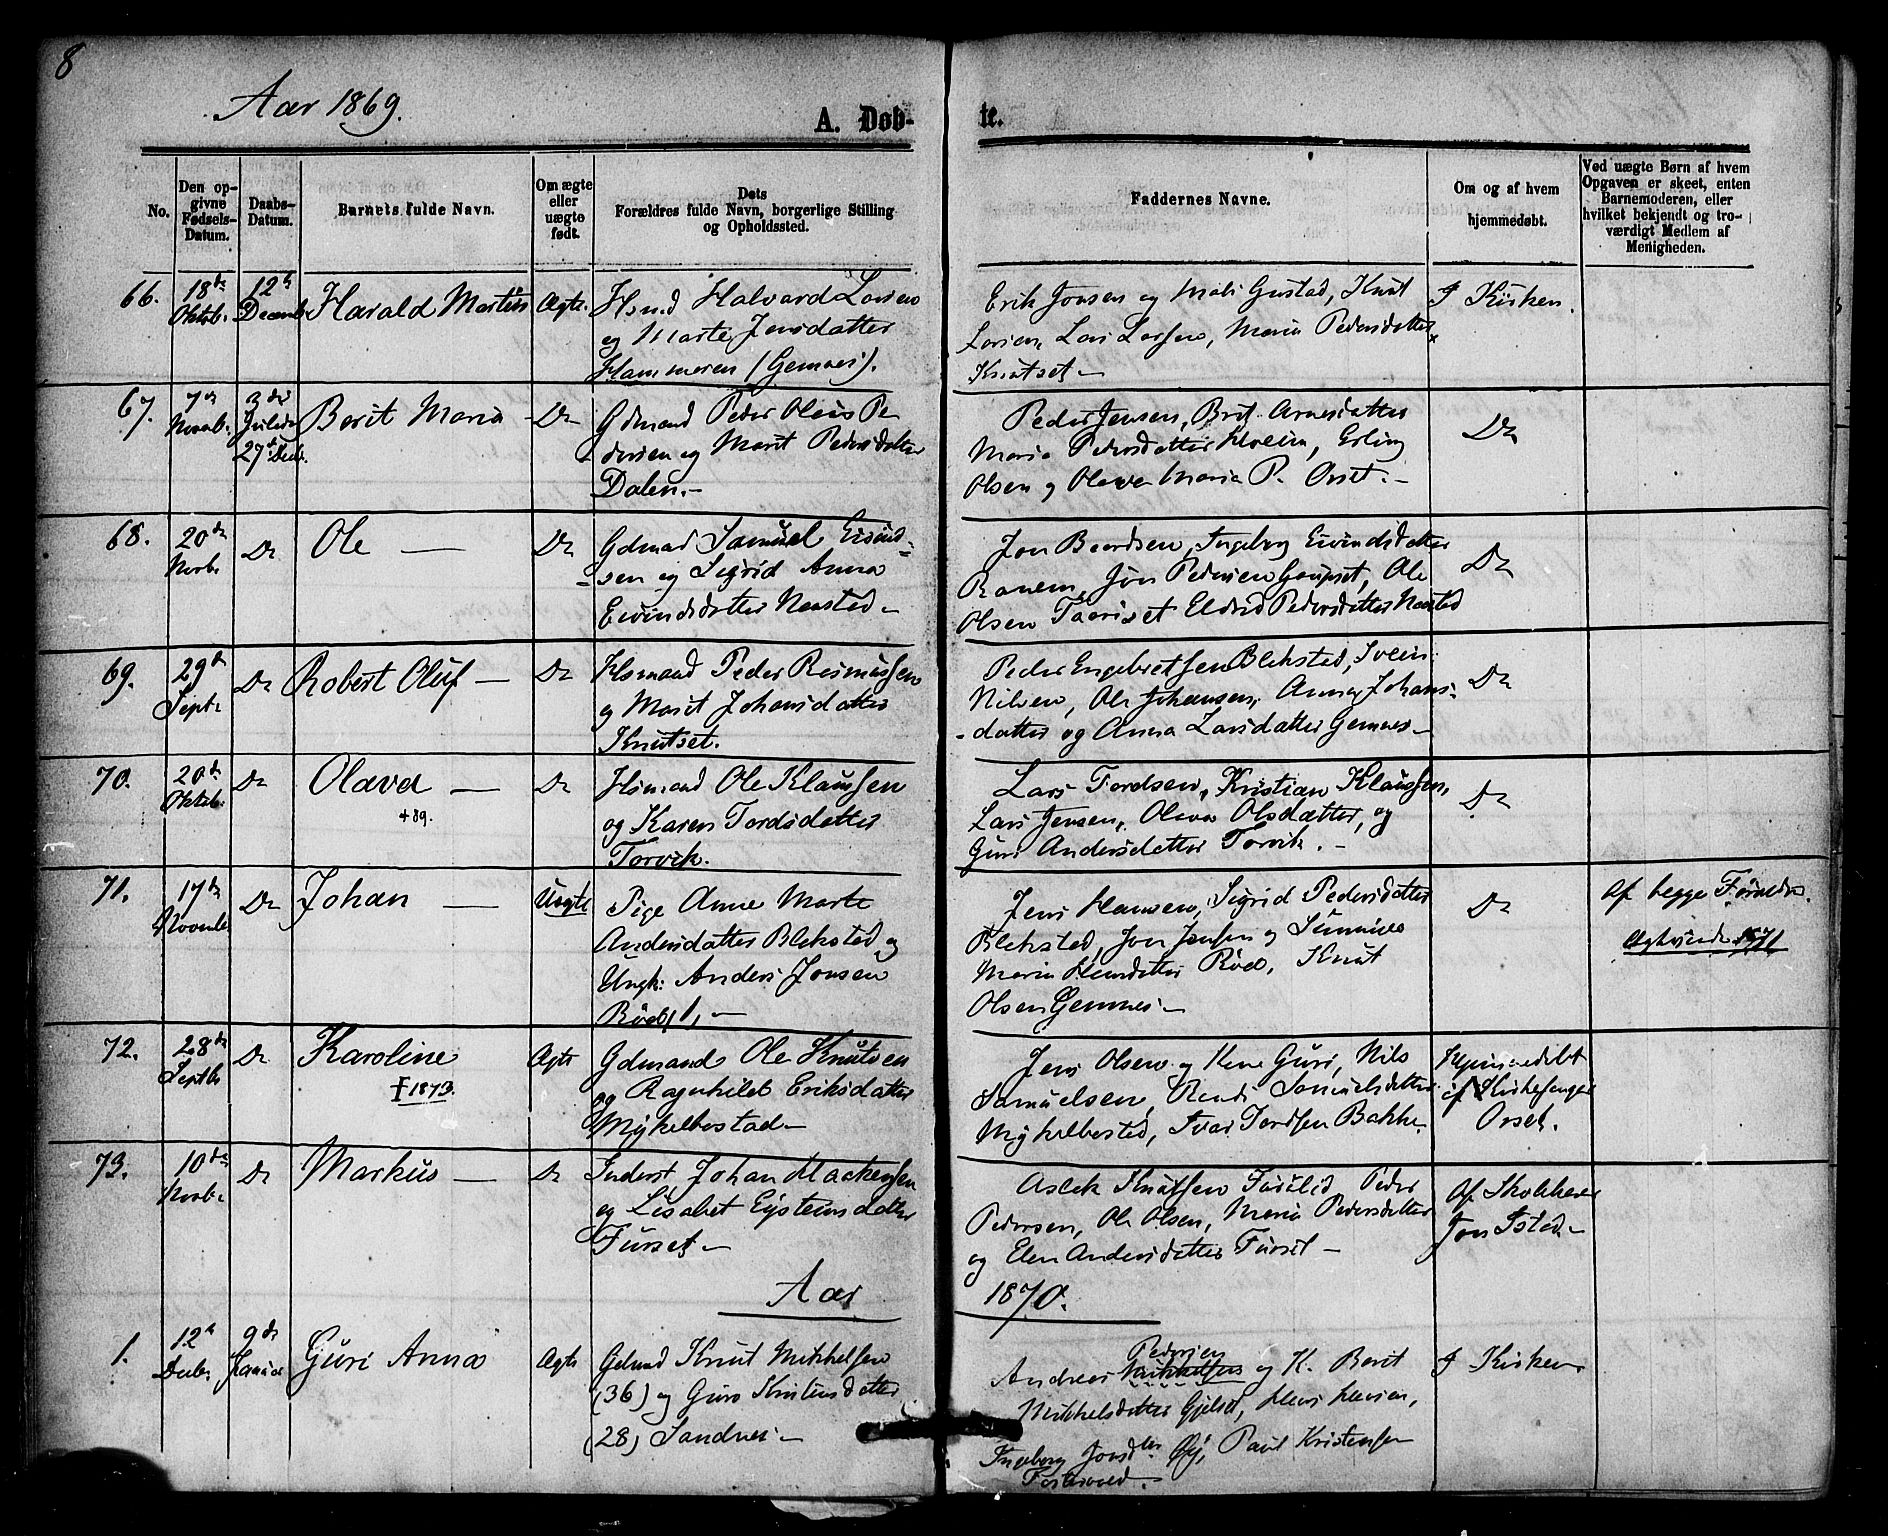 8
Aar 1869.
A. Døb-
te.
No.
Den op-
givne
Fødsels-
Datum.
Daabs-
Datum.
Barnets fulde Navn.
Om ægte
eller
uægte
født.
Dets
Forældres fulde Navn, borgerlige Stilling
og Opholdssted.
Faddernes Navne.
Om og af hvem
hjemmedøbt.
Ved uægte Børn af hvem
Opgaven er skeet, enten
Barnemoderen, eller
hvilket bekjendt og tro-
værdigt Medlem af
Menigheden.
66.
18de
Oktob.
12te
Decemb.
Harald Martin
Ægte.
Hsmd Halvard Larsen
og Marte Jensdatter
Hammeren (Gemnes).
Erik Jonsen og Mali Gustad, Knut
Larsen, Lars Larsen, Maria Pedersdatter
Knutset –
I Kirken.
67.
7de
Novb.
3die
Juledag
27de Decb.
Berit Maria
Do
Gdmand Peder Olaus Pe
dersen og Marit Pedersdatter
Dalen. –
Peder Jensen, Brit Arnesdatter
Maria Pedersdatter Kleven, Erling
Olsen og Olava Maria P. Orset. –
Do
68.
20de
Novb.
Do
Ole –
Do
Gdmad Samuel Eivind-
sen og Sigrid Anna
Eivindsdatter Naastad –
Jon Baardsen, Ingebog Eivindsdatter
Ranem, Jon Pedersen Gaupset, Ole
Olsen Taariset Eldrid Pedersdatter Naastad
Do
69.
29de
Septb.
Do
Robert Oluf –
Do
Hsmand Peder Rasmussen
og Marit Johansdatter
Knutset.
Peder Engebretsen Blekstad, Svein
Nilsen, Ole Johansen, Anna Johans-
datter og Anna Larsdatter Gemnes –
Do
70.
20de
Oktob.
Do
Olava –
+ 89.
Do
Hsmand Ole Klaussen
og Karen Tordsdatter
Torvik.
Lars Tordsen, Kristian Klaussen,
Lars Jensen, Olava Olsdatter, og
Guri Andersdatter Torvik. –
Do
71.
17de
Novemb.
Do
Johan –
Uægte
Pige Anne Marte
Andersdatter Blekstad og
Ungk: Anders Jonsen
Rød, 1, –
Jens Hansen, Sigrid Pedersdatter
Blekstad, Jon Jensen og Sunniva
Maria Hansdatter Rød, Knut
Olsen Gemnes –
Do
Af begge Forældre.
1871
72.
28de
Septb.
Do
Karoline
† 1873.
Ægte
Gdmand Ole Knutsen
og Ragnhild Eriksdatter
Myklebostad –
Jens Olsen og Kone Guri, Nils
Samuelsen, Randi Samuelsdatter
Myklebostad, Ivar Tordsen Bakke.
Hjemmedøbt
af Kirkesanger
Orset.
73.
10de
Novb.
Do
Markus –
Do
Inderst Johan Markussen
og Lisabet Eysteinsdatter
Furset –
Aslak Knutsen Furulid, Peder
Pedersen, Ole Olsen, Maria Pedersdatter
og Elen Andersdatter Furset –
Af Skolelærer
Jon Istad –
Aar
1870.
1.
12te
Decb.
9de
Januar
Guri Anna
Ægte
Gdmd Knut Mikkelsen
(36) og Guro Kristensdatter
(28) Sandnes –
Pedersen
Andreas Mikkelsen og K. Berit
Mikkelsdatter Gjelset, Hans Hansen,
Ingeborg Jonsdtr Øij, Paul Kristensen
Fostervold. –
I Kirken